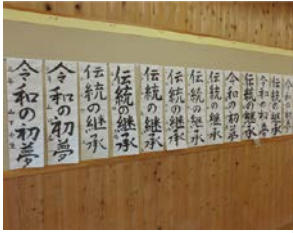 令和の初夢
令和の初夢
伝統の継承
伝統の継承
伝統の継承
伝統の継承
伝統の継承
伝統の継承
令和の初夢
伝統の継承
令和の初夢
伝統の継承
令和の初夢